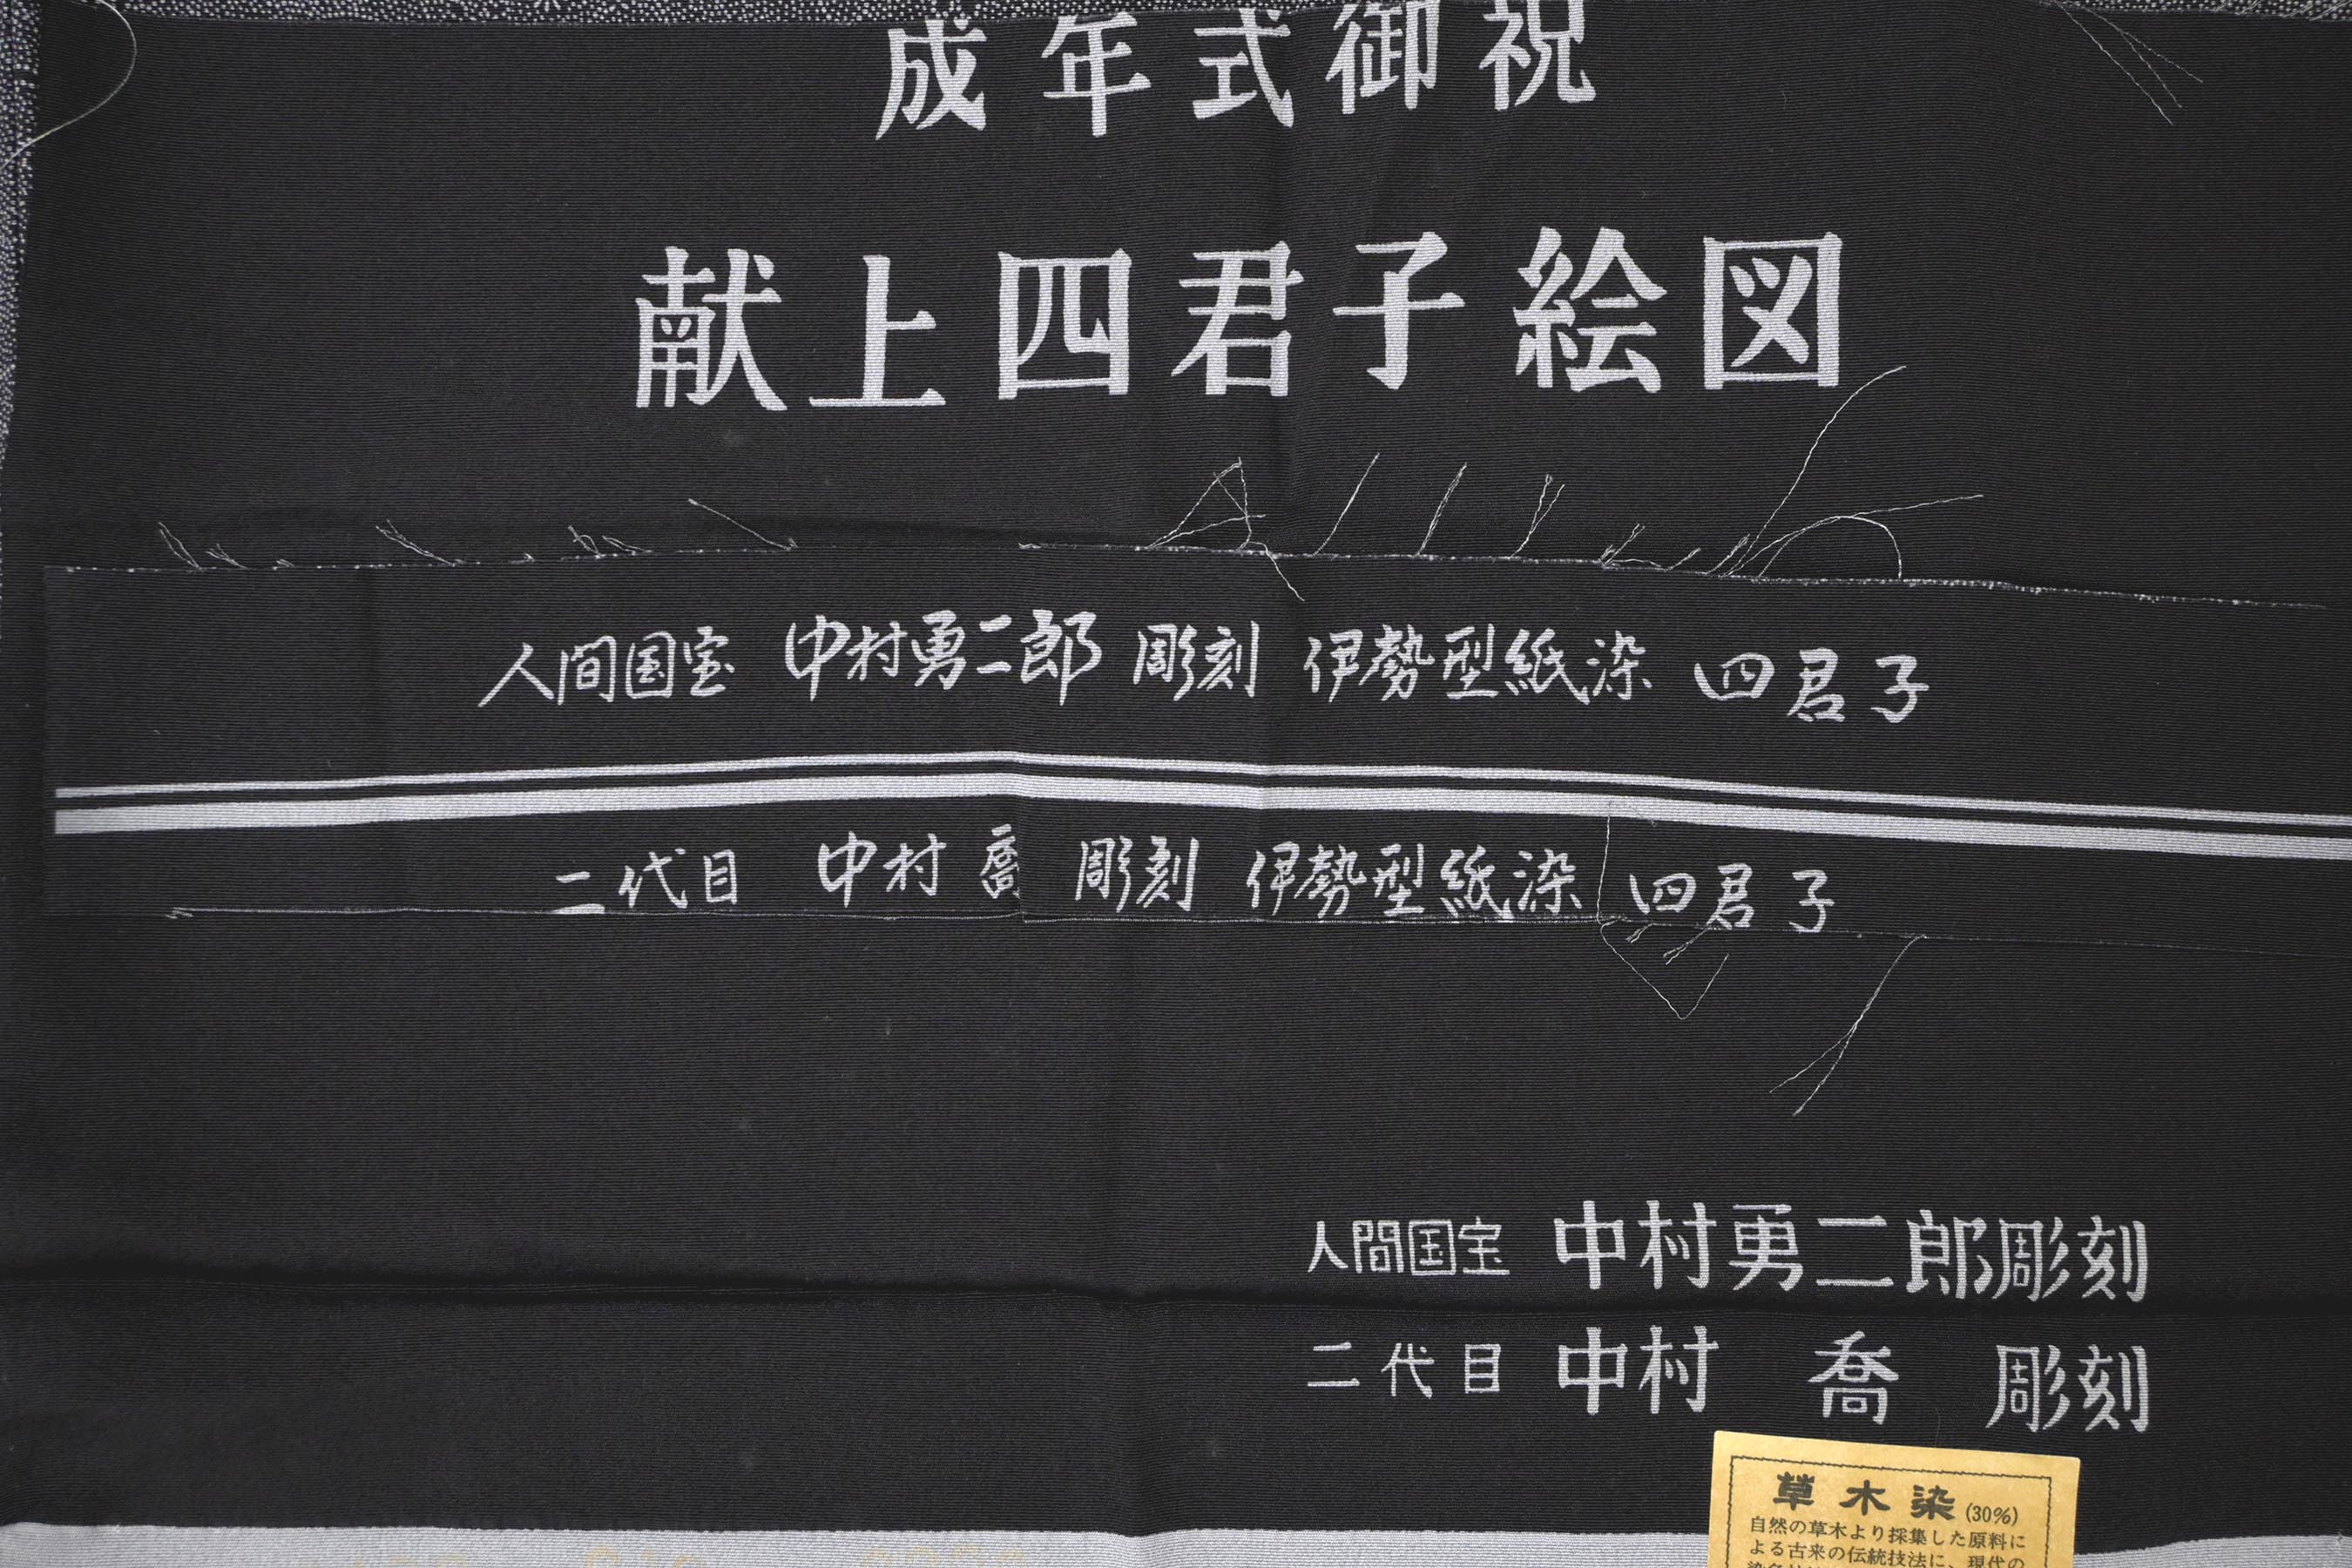 成年式御祝
献上四君子絵図
人間国宝 中村勇二郎 彫刻 伊勢型紙染 四君子
二代目 中村 喬 彫刻 伊勢型紙染 四君子
人間国宝 中村勇二郎彫刻
二代目 中村 喬 彫刻
草木染(30%)
自然の草木より採集した原料に
よる古来の伝統技法に、現代の